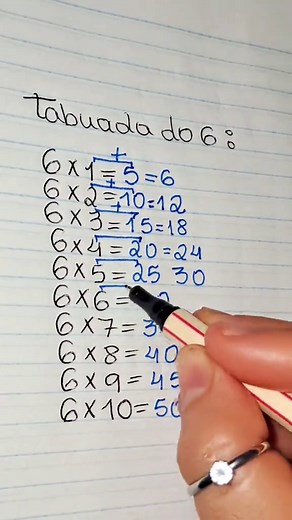 Tabuada do 6:
6 x 1 = 5 = 6
6 x 2 = 10 = 12
6 x 3 = 15 = 18
6 x 4 = 20 = 24
6 x 5 = 25 30
6 x 6 =
6 x 7 = 3
6 x 8 = 40
6 x 9 = 45
6 x 10 = 50